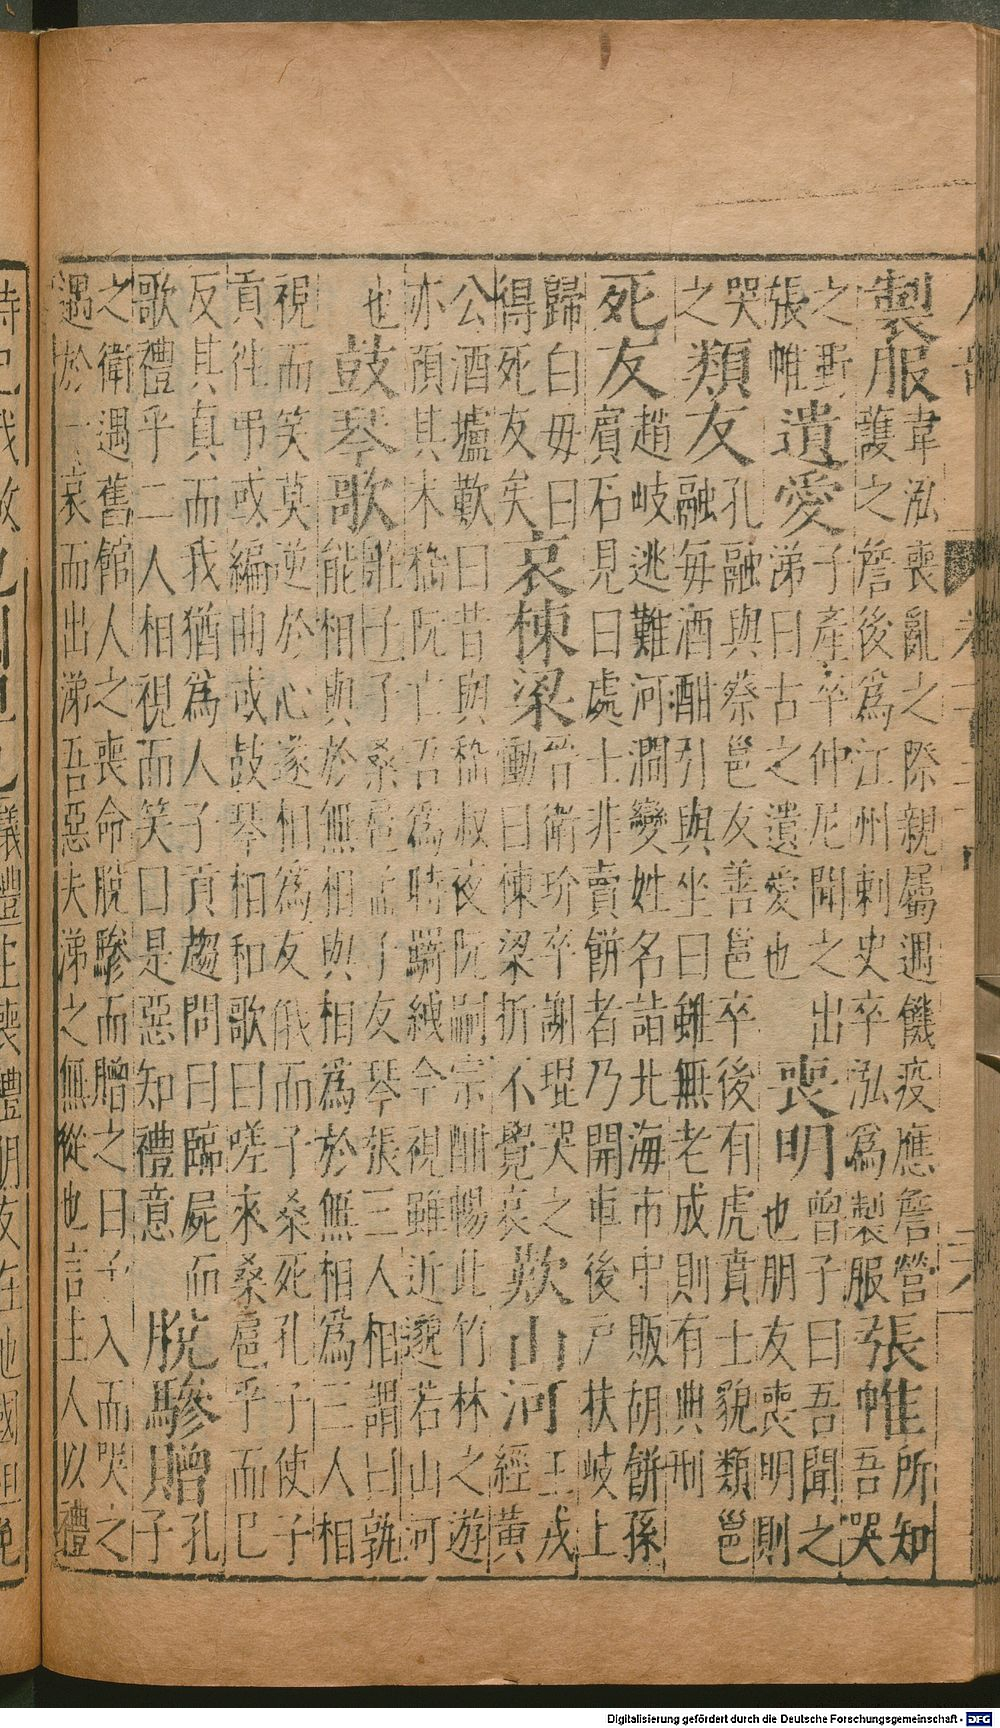 製服
韋泓喪亂之際親屬遇饑疫應詹營
護之詹後爲江州刺史卒泓爲製服
張帷
所知
吾哭
之野
張帷
遺愛
子產卒仲尼聞之出
涕曰古之遺愛也
喪明
曾子曰吾聞之
也朋友喪明則
哭
之
類友
孔融與蔡邕友善邕卒後有虎賁士貌類邕
融每酒酣引與坐曰雖無老成則有典刑
死友
趙岐逃難河澗變姓名詣北海市中販胡餅孫
賔石見曰處士非賣餅者乃開車後戸扶岐上
歸白毋曰
得死友矣
哀棟梁
晉衛玠卒謝琨哭之
慟曰棟梁折不覺哀
歎山河
王戎
經黃
公酒壚歎曰昔與嵇叔夜阮嗣宗酣暢此竹林之遊
亦預其末嵇阮亡吾爲時羇紲今視雖近邈若山河
也
鼓琴歌
莊子子桑扈孟子友琴張三人相謂曰孰
能相與於無相與相爲於無相爲三人相
視而笑莫逆於心遂相爲友俄而子桑死孔子使子
貢徃弔或編曲或鼓琴相和歌曰嗟來桑扈乎而已
反其真而我猶爲人子貢趨問曰臨屍而
歌禮乎二人相視而笑曰是惡知禮意
脫驂贈
孔
子
之衛遇舊館人之喪命脫驂而贈之曰予入而哭之
遇於一哀而出涕吾惡夫涕之無從也言主人以禮
Digitalisierung gefördert durch die Deutsche Forschungsgemeinschaft - DFG